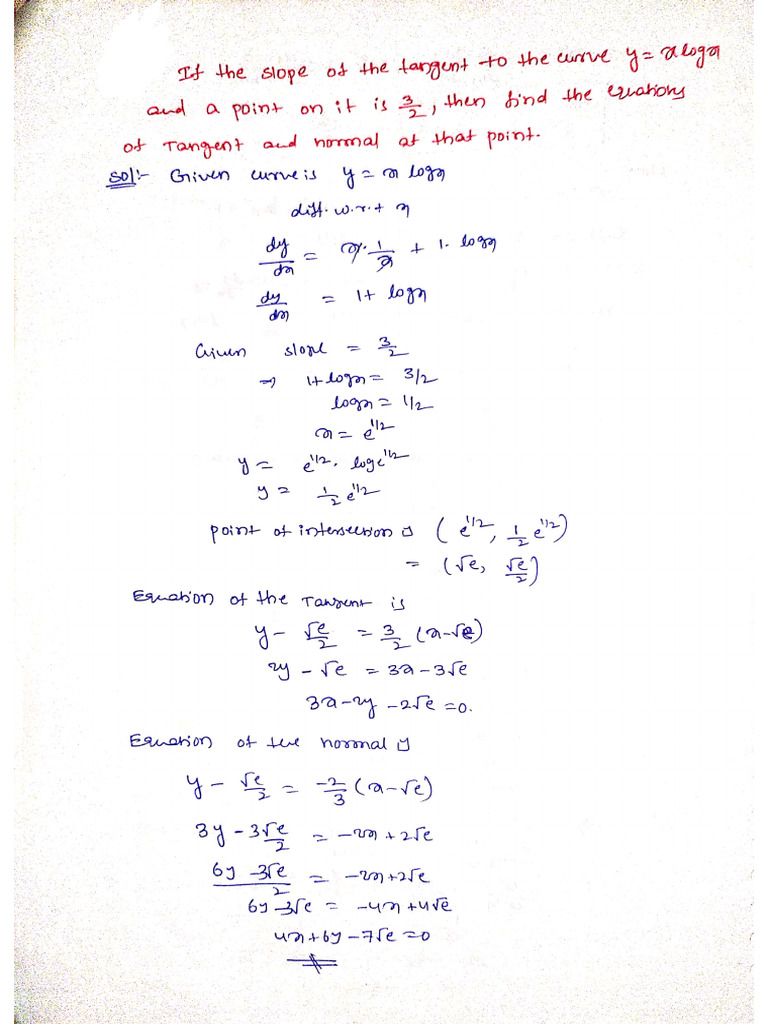 If the slope of the tangent to the curve y = x logx
and a point on it is 3/2, then find the equations
of Tangent and normal at that point.
Sol:- Given curve is y = x logx
diff. w.r.t x
dy/dx = x. 1/x + 1. logx
dy/dx = 1+ logx
Given slope = 3/2
⇒ 1+logx = 3/2
logx = 1/2
x = e^1/2
y = e^1/2. loge^1/2
y = 1/2 e^1/2
point of intersection is (e^1/2, 1/2 e^1/2)
= (√e, √e/2)
Equation of the Tangent is
y - √e/2 = 3/2 (x-√e)
2y - √e = 3x - 3√e
3x - 2y - 2√e = 0.
Equation of the normal is
y - √e/2 = -2/3 (x-√e)
3y - 3√e/2 = -2x + 2√e
6y - 3√e/2 = -2x + 2√e
6y - 3√e = -4x + 4√e
4x + 6y - 7√e = 0